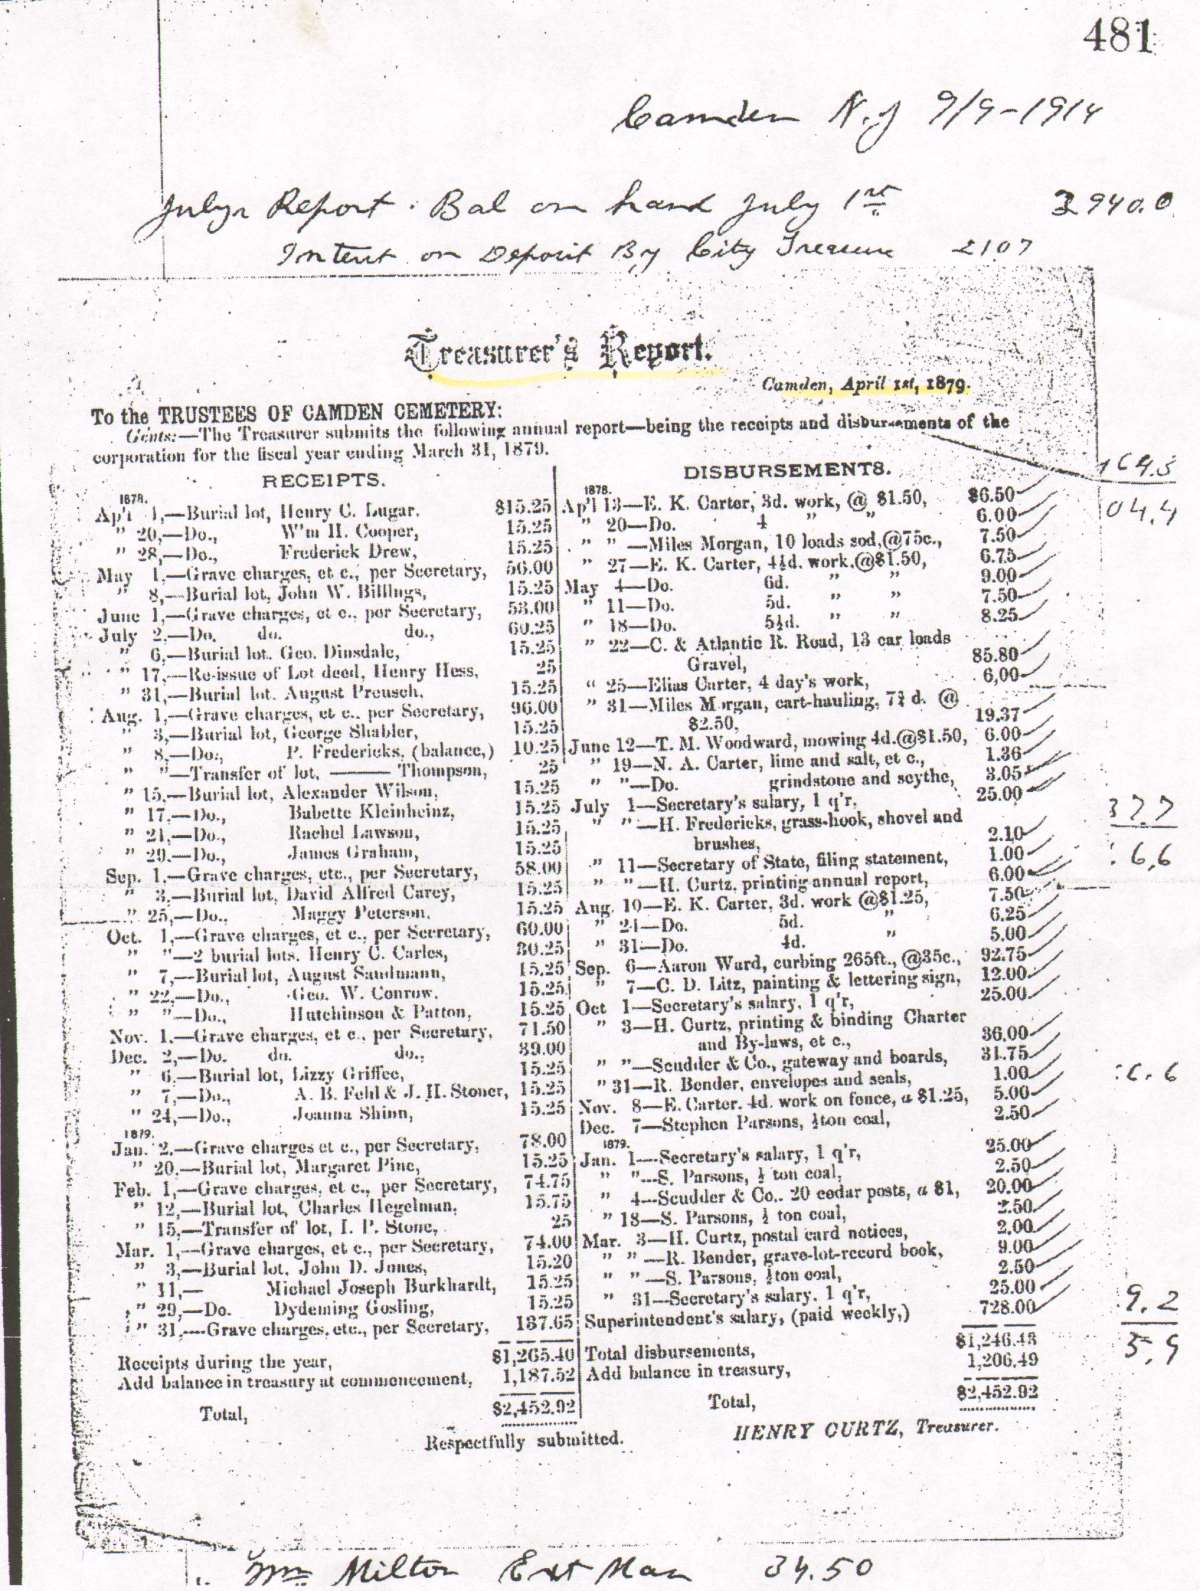 481
Camden N.J 9/9-1914
July Report. Bal on hand July 1st 2940.0
on Deposit By City 2107
Treasurer's Report.
Camden, April 1st, 1879.
To the TRUSTEES OF CAMDEN CEMETERY:
Gents:—The Treasurer submits the following annual report—being the receipts and disbursements of the
corporation for the fiscal year ending March 31, 1879.
RECEIPTS.
1878.
Ap'l 4,—Burial lot, Henry C. Lugar, $15.25
" 20,—Do., W'm H. Cooper, 15.25
" 28,—Do., Frederick Drew, 15.25
May 1,—Grave charges, et c., per Secretary, 56.00
" 8,—Burial lot, John W. Billings, 15.25
June 1,—Grave charges, et c., per Secretary, 53.00
July 2,—Do. do. do., 60.25
" 6,—Burial lot. Geo. Dinsdale, 15.25
" 17,—Re-issue of Lot deed, Henry Hess, 25
" 31,—Burial lot. August Preusch, 15.25
Aug. 1,—Grave charges, et c.. per Secretary, 96.00
" 3,—Burial lot, George Shabler, 15.25
" 8,—Do., P. Fredericks, (balance,) 10.25
" "—Transfer of lot, ——— Thompson, 25
" 15,—Burial lot, Alexander Wilson, 15.25
" 17,—Do., Babette Kleinheinz, 15.25
" 21,—Do., Rachel Lawson, 15.25
" 29,—Do., James Graham, 15.25
Sep. 1,—Grave charges, etc., per Secretary, 58.00
" 3,—Burial lot, David Alfred Carey, 15.25
" 25,—Do., Maggy Peterson, 15.25
Oct. 1,—Grave charges, et c., per Secretary, 60.00
" "—2 burial lots. Henry C. Carles, 30.25
" 7,—Burial lot, August Sandmann, 15.25
" 22,—Do., Geo. W. Conrow. 15.25
" "—Do., Hutchinson & Patton, 15.25
Nov. 1.—Grave charges, et c., per Secretary, 71.50
Dec. 2,—Do. do. do., 39.00
" 6,—Burial lot, Lizzy Griffee, 15.25
" 7,—Do., A. B. Fehl & J. H. Stoner, 15.25
" 24,—Do., Joanna Shinn, 15.25
1879.
Jan. 2.—Grave charges et c., per Secretary, 78.00
" 20.—Burial lot, Margaret Pine, 15.25
Feb. 1,—Grave charges, et c., per Secretary, 74.75
" 12,—Burial lot, Charles Hegelman, 15.75
" 15,—Transfer of lot, I. P. Stone, 25
Mar. 1,—Grave charges, et c., per Secretary, 74.00
" 3,—Burial lot, John D. Jones, 15.20
" 11,— Michael Joseph Burkhardt, 15.25
" 29,—Do. Dydeming Gosling, 15.25
" 31,—Grave charges, etc., per Secretary, 137.65
Receipts during the year, $1,265.40
Add balance in treasury at commencement, 1,187.52
Total, $2,452.92
DISBURSEMENTS.
1878.
Ap'l 13—E. K. Carter, 3d. work, @ $1.50, $6.50
" 20—Do. 4 " " 6.00
" "—Miles Morgan, 10 loads sod, @75c., 7.50
" 27—E. K. Carter, 4½d. work, @$1.50, 6.75
May 4—Do. 6d. " " 9.00
" 11—Do. 5d. " " 7.50
" 18—Do. 5½d. " " 8.25
" 22—C. & Atlantic R. Road, 13 car loads
Gravel, 85.80
" 25—Elias Carter, 4 day's work, 6,00
" 31—Miles Morgan, cart-hauling, 7¾ d. @
$2.50, 19.37
June 12—T. M. Woodward, mowing 4d.@$1.50, 6.00
" 19—N. A. Carter, lime and salt, et c., 1.36
" "—Do. grindstone and scythe, 3.05
July 1—Secretary's salary, 1 q'r, 25.00
" "—H. Fredericks, grass-hook, shovel and
brushes, 2.10
" 11—Secretary of State, filing statement, 1.00
" "—H. Curtz, printing annual report, 6.00
Aug. 10—E. K. Carter, 3d. work @$1.25, 7.50
" 24—Do. 5d. " 6.25
" 31—Do. 4d. " 5.00
Sep. 6—Aaron Ward, curbing 265ft., @35c., 92.75
" 7—C. D. Litz, painting & lettering sign, 12.00
Oct 1—Secretary's salary, 1 q'r, 25.00
" 3—H. Curtz, printing & binding Charter
and By-laws, et c., 36.00
" "—Scudder & Co., gateway and boards, 31.75
" 31—R. Bender, envelopes and seals, 1.00
Nov. 8—E. Carter. 4d. work on fence, a $1.25, 5.00
Dec. 7—Stephen Parsons, ½ton coal, 2.50
1879.
Jan. 1—Secretary's salary, 1 q'r, 25.00
" "—S. Parsons, ½ ton coal, 2.50
" 4—Scudder & Co.. 20 cedar posts, a $1, 20.00
" 18—S. Parsons, ½ ton coal, 2.50
Mar. 3—H. Curtz, postal card notices, 2,00
" "—R. Bender, grave-lot-record book, 9.00
" "—S. Parsons, ½ton coal, 2.50
" 31—Secretary's salary. 1 q'r, 25.00
Superintendent's salary, (paid weekly,) 728.00
Total disbursements, $1,246.43
Add balance in treasury, 1,206.49
Total, $2,452.92
Respectfully submitted.
HENRY CURTZ, Treasurer.
164.3
04.4
37.7
6.6
6.6
9.2
5.9
Milton Ext Man 34.50